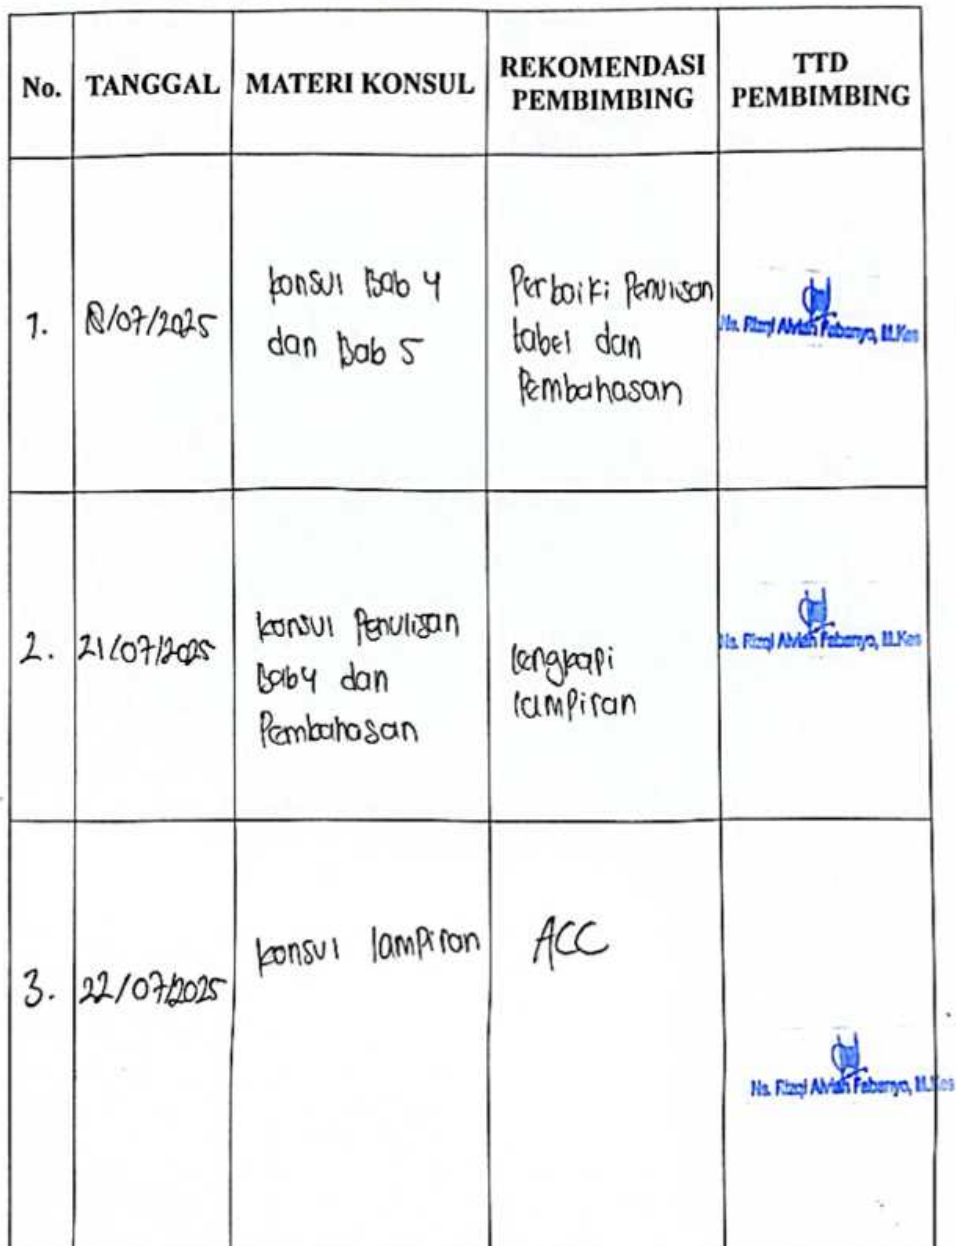 No.
TANGGAL
MATERI KONSUL
REKOMENDASI
PEMBIMBING
TTD
PEMBIMBING
1.
/07/2025
konsul Bab 4
dan Bab 5
Perbaiki Penulisan
tabel dan
Pembahasan
Ns. Rizqi Alvian Fabanyo, M.Kes
2.
21/07/2025
konsul Penulisan
Bab 4 dan
Pembahasan
lengkapi
lampiran
Ns. Rizqi Alvian Fabanyo, M.Kes
3.
22/07/2025
konsul lampiran
ACC
Ns. Rizqi Alvian Fabanyo, M.Kes